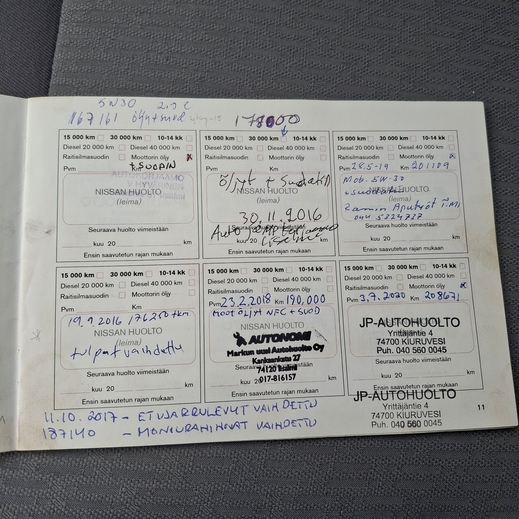 5W30
167161 öljyt+suod
178000
15 000 km 30 000 km 10-14 kk
Diesel 20 000 km Diesel 40 000 km
Raitisilmasuodin Moottorin öljy
Pvm Km
NISSAN HUOLTO
(leima)
Seuraava huolto viimeistään
kuu 20 km
Ensin saavutetun rajan mukaan
15 000 km 30 000 km 10-14 kk
Diesel 20 000 km Diesel 40 000 km
Raitisilmasuodin Moottorin öljy
Öljyt + Suodatin
NISSAN HUOLTO
30.11.2016
Seuraava huolto viimeistään
kuu 20 km
Ensin saavutetun rajan mukaan
15 000 km 30 000 km 10-14 kk
Diesel 20 000 km Diesel 40 000 km
Raitisilmasuodin Moottorin öljy
Pvm 28.5-19 Km 201189
Mob. 5W 30
NISSAN HUOLTO
+suodatin
(leima)
Seuraava huolto viimeistään
kuu 20 km
Ensin saavutetun rajan mukaan
15 000 km 30 000 km 10-14 kk
Diesel 20 000 km Diesel 40 000 km
Raitisilmasuodin Moottorin öljy
Pvm Km
19.9.2016 176250 km
NISSAN HUOLTO
(leima)
tulpat vaihdettu
Seuraava huolto viimeistään
kuu 20 km
Ensin saavutetun rajan mukaan
15 000 km 30 000 km 10-14 kk
Diesel 20 000 km Diesel 40 000 km
Raitisilmasuodin Moottorin öljy
Pvm 23.2.2018 Km 190,000
NISSAN HUOLTO
AUTONOMI
Markun uusi Autohuolto Oy
Kankaankatu 27
74120 Iisalmi
017-816157
kuu 20 km
Ensin saavutetun rajan mukaan
15 000 km 30 000 km 10-14 kk
Diesel 20 000 km Diesel 40 000 km
Raitisilmasuodin Moottorin öljy
Pvm 3.7.2020 Km 208671
JP-AUTOHUOLTO
Yrittäjäntie 4
74700 KIURUVESI
Puh. 040 560 0045
Seuraava huolto viimeistään
kuu 20 km
Ensin saavutetun rajan mukaan
JP-AUTOHUOLTO
Yrittäjäntie 4
74700 KIURUVESI
Puh. 040 560 0045
11.10.2017 - ETUJARRULEVYT VAIHDETTU
187140 - MONIURAHIHNAT VAIHDETTU
11